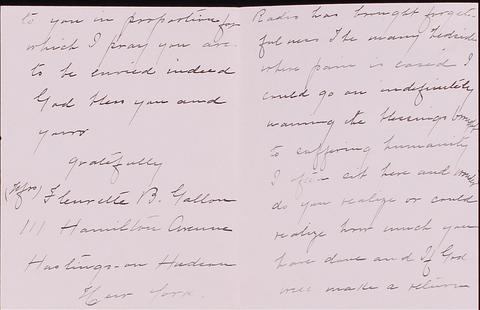 to you in proportion for
which I pray you are
to be envied indeed
God bless you and
yours
gratefully
(Mrs) Fleurette B. Gallon
111 Hamilton Avenue
Hastings-on Hudson
New York.
Radio has brought forget-
fulness the many bedside
where pain is eased I
could go on indefinitely
naming the blessings brought
to suffering humanity
I sit here and wonder
do you realize or could
realize how much you
have done and if God
will make a return